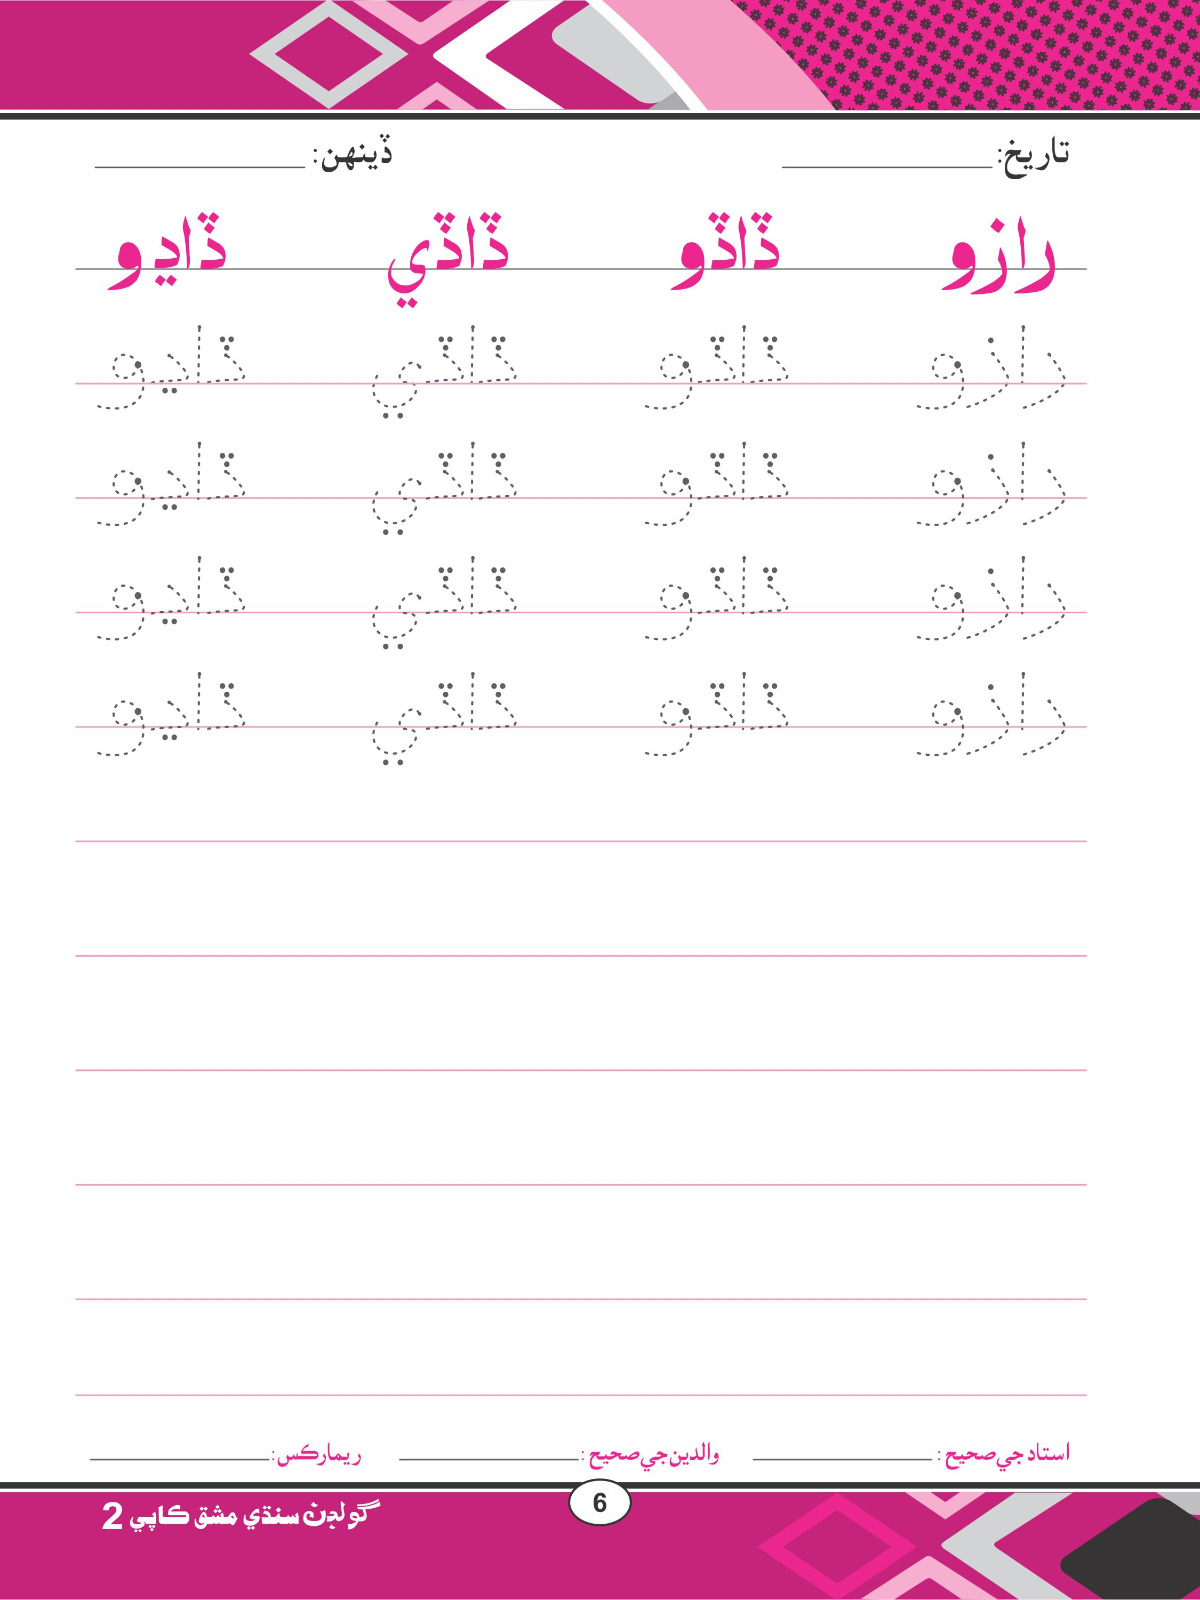 تاريخ: ڏينهن:
رازو ڏاڏو ڏاڏي ڏاڍو
رازو ڏاڏو ڏاڏي ڏاڍو
رازو ڏاڏو ڏاڏي ڏاڍو
رازو ڏاڏو ڏاڏي ڏاڍو
رازو ڏاڏو ڏاڏي ڏاڍو
استاد جي صحيح : والدين جي صحيح : ريمارڪس :
6
گولڊن سنڌي مشق ڪاپي 2